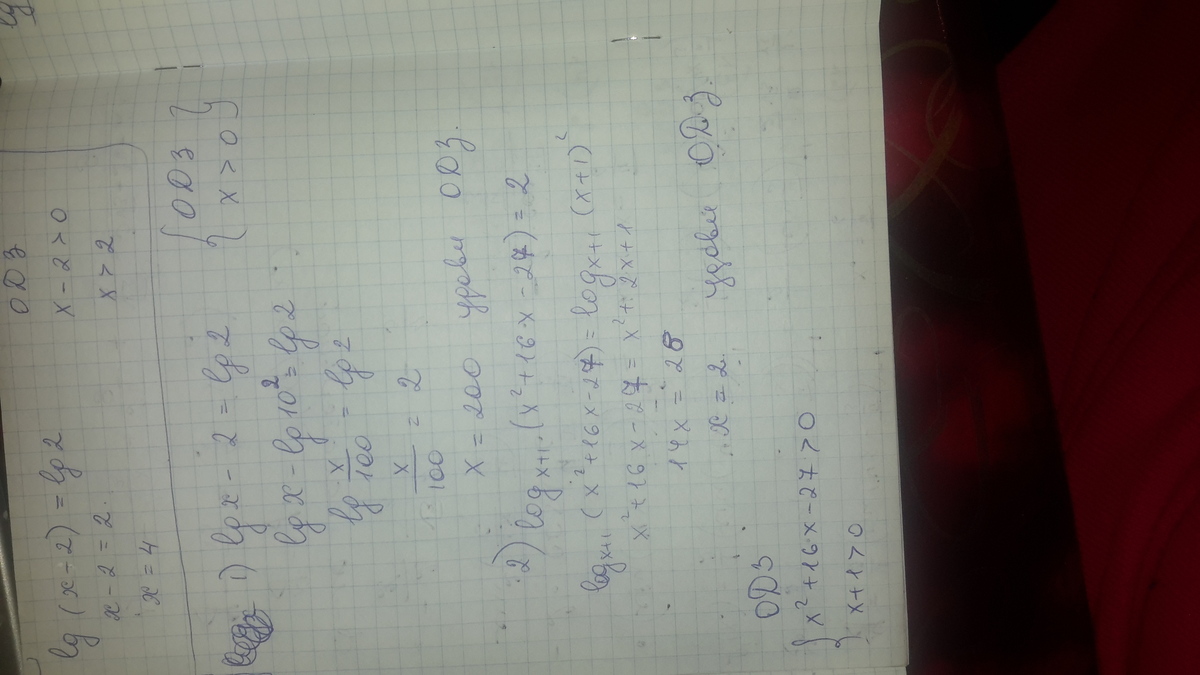 lg (x-2) = lg 2
x - 2 = 2
x = 4
ОДЗ
x - 2 > 0
x > 2
1) lg x - 2 = lg 2
{ ОДЗ }
{ x > 0 }
lg x - lg 10² = lg 2
lg x/100 = lg 2
x/100 = 2
x = 200 удовл ОДЗ.
2) log x+1 (x² + 16x - 27) = 2
log x+1 (x² + 16x - 27) = log x+1 (x+1)²
x² + 16x - 27 = x² + 2x + 1
14x = 28
x = 2 удовл ОДЗ.
ОДЗ
{ x² + 16x - 27 > 0
x + 1 > 0